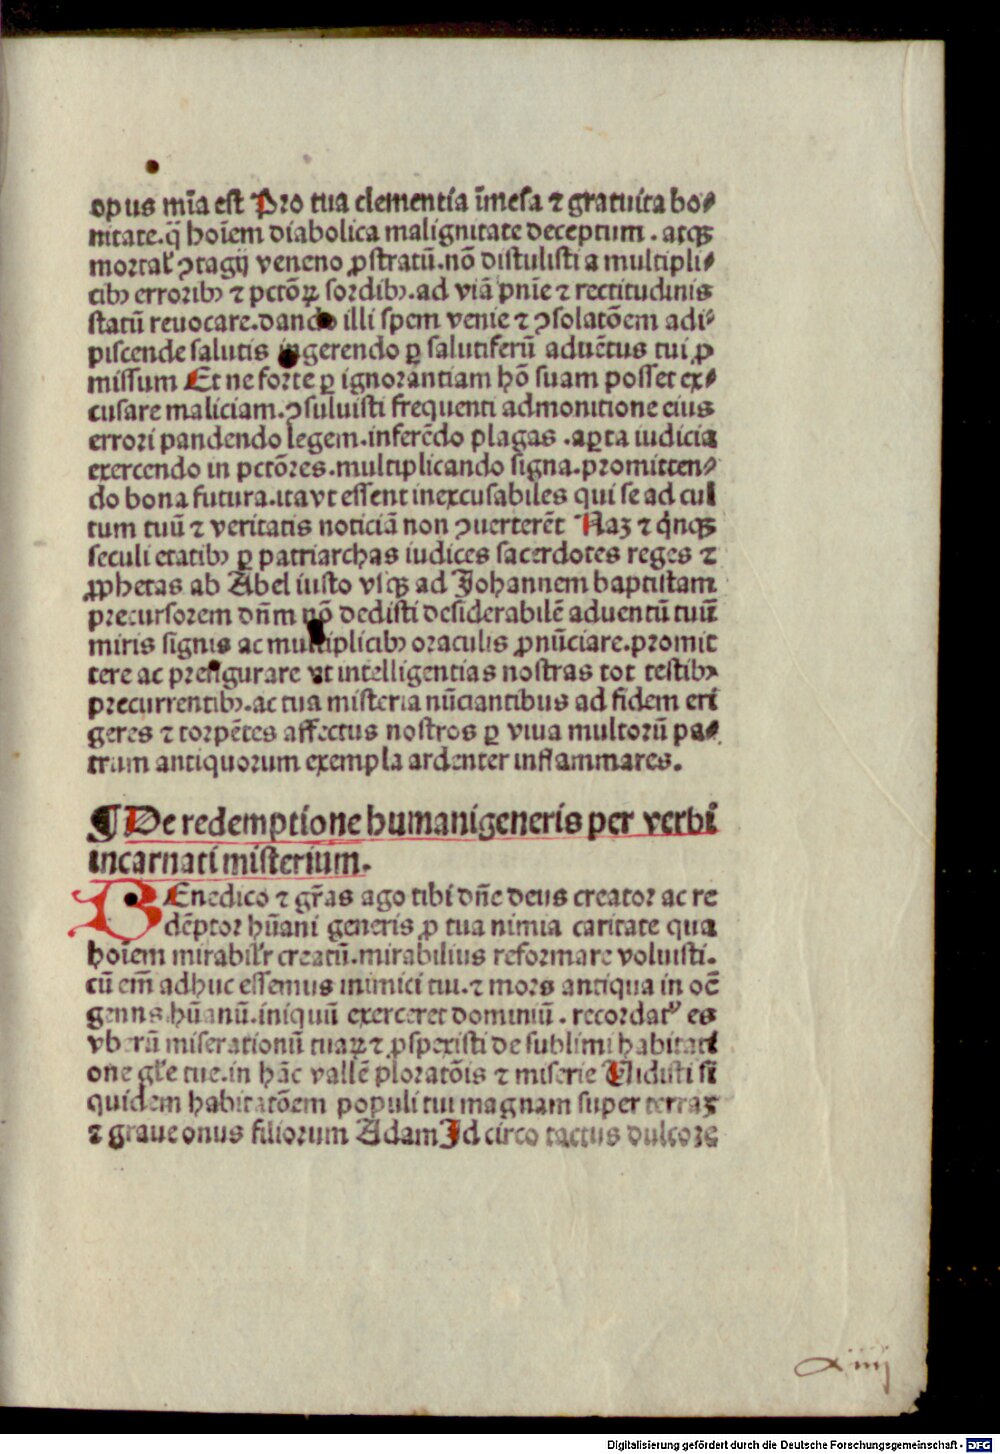 opus mīa est Pro tua clementia īmēsa ⁊ gratuita bo⸗
nitate.q̄ hoīem diabolica malignitate deceptum . atqꝫ
mortal' ꝯtagij veneno ꝓstratū.nō distulisti a multipli⸗
cibꝫ erroribꝫ ⁊ pctōꝝ sordibꝫ.ad viā pn̄ie ⁊ rectitudinis
statū reuocare.dando illi spem venie ⁊ ꝯsolatōem adi⸗
piscende salutis ingerendo ꝑ salutiferū aduētus tui ꝓ
missum Et ne forte ꝑ ignorantiam hō suam posset ex⸗
cusare maliciam.ꝯsuluisti frequenti admonitione eius
errori pandendo legem.inferēdo plagas .aꝑta iudicia
exercendo in pctōres.multiplicando signa.promitten⸗
do bona futura.ita vt essent inexcusabiles qui se ad cul
tum tuū ⁊ veritatis noticiā non ꝯuerterēt Naꝫ ⁊ qn̄qꝫ
seculi etatibꝫ ꝑ patriarchas iudices sacerdotes reges ⁊
ꝓphetas ab Abel iusto vsqꝫ ad Johannem baptistam
precursorem dn̄m nō dedisti desiderabilē aduentū tuū
miris signis ac multiplicibꝫ oraculis ꝓnūciare.promit
tere ac prefigurare vt intelligentias nostras tot testibꝫ
precurrentibꝫ.ac tua misteria nūciantibus ad fidem eri
geres ⁊ torpētes affectus nostros ꝑ viua multorū pa⸗
trum antiquorum exempla ardenter inflammares.
¶ De redemptione humani generis per verbi
incarnati misterium.
BEnedico ⁊ gr̄as ago tibi dn̄e deus creator ac re
dēptor hūani generis ꝓ tua nimia caritate qua
hoīem mirabil'r creatū.mirabilius reformare voluisti.
cū em̄ adhuc essemus inimici tui.⁊ mors antiqua in oē
genns hūanū.iniquū exerceret dominiū . recordatꝰ es
vberū miserationū tuaꝝ ⁊ ꝓspexisti de sublimi habitati
one gl'e tue.in hāc vallē ploratōis ⁊ miserie Vidisti si
quidem habitatōem populi tui magnam super terraꝫ
⁊ graue onus filiorum Adam Id circo tactus dulcore
xiiij
Digitalisierung gefördert durch die Deutsche Forschungsgemeinschaft - DFG